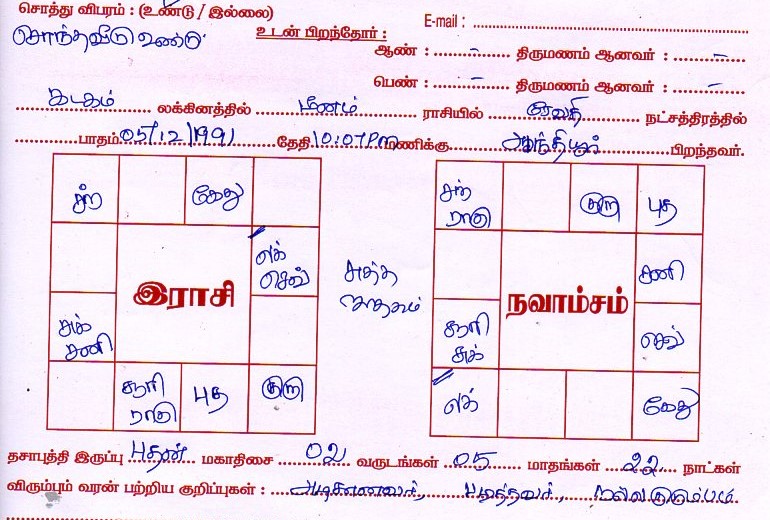 சொத்து விபரம் : (உண்டு / இல்லை)
E-mail :
சொந்தவீடு உண்டு
உடன் பிறந்தோர் :
ஆண் : – திருமணம் ஆனவர் : –
பெண் : – திருமணம் ஆனவர் : –
கடகம் லக்கினத்தில் மீனம் ராசியில் ரேவதி நட்சத்திரத்தில்
பாதம் 05/12/1991 தேதி 10:07PM மணிக்கு பிறந்தவர்.
கேது
லக் செவ்
இராசி
சுக் சனி
சூரி ராகு
புத
குரு
சுத்த ஜாதகம்
சந் ராகு
குரு
புத
சனி
நவாம்சம்
சூரி சுக்
செவ்
லக்
கேது
தசாபுத்தி இருப்பு புதன் மகாதிசை 02 வருடங்கள் 05 மாதங்கள் 22 நாட்கள்
விரும்பும் வரன் பற்றிய குறிப்புகள் : படித்தவர், நல்லகுடும்பம்.